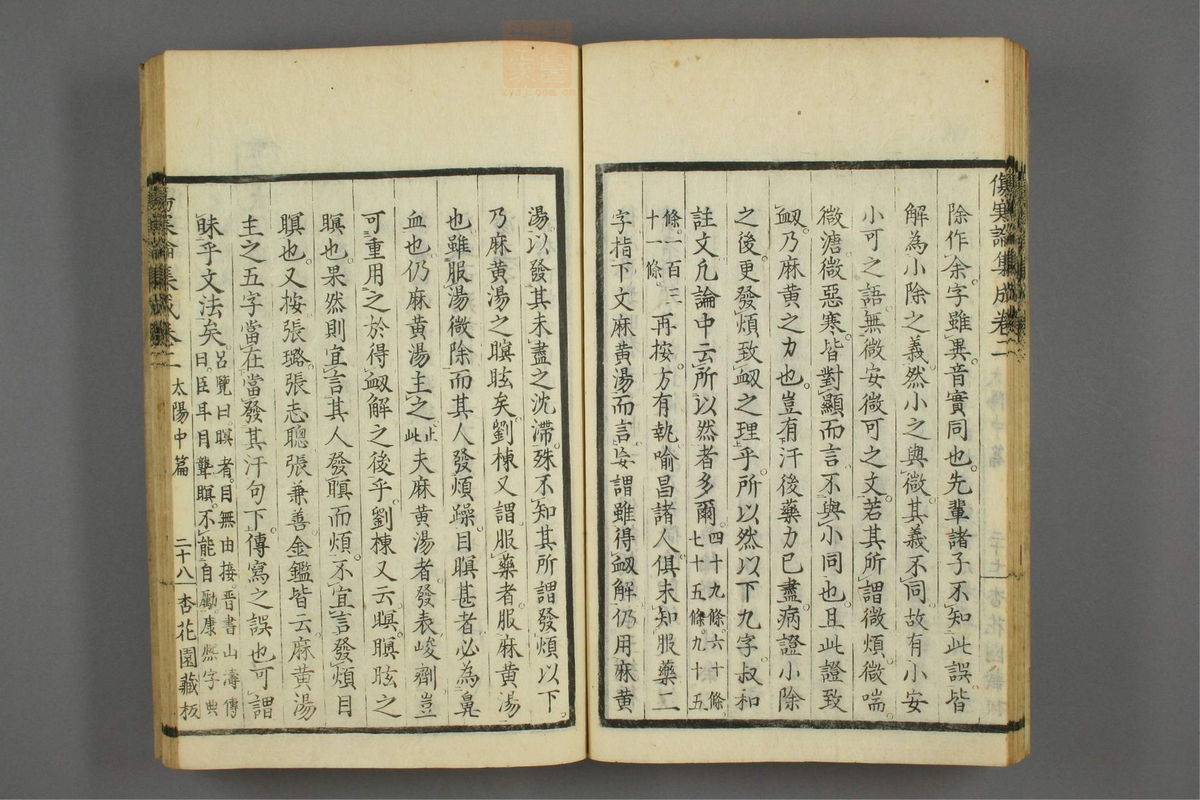 傷寒論集成卷二
除作余字雖異音實同也先輩諸子不知此誤皆
解為小除之義然小之與微其義不同故有小安
小可之語無微安微可之文若其所謂微煩微喘
微溏微惡寒皆對顯而言不與小同也且此證致
衂乃麻黄之力也豈有汗後藥力已盡病證小除
之後更發煩致衂之理乎所以然以下九字叔和
註文凡論中云所以然者多爾四十九條六十條七十五條九十五
條一百三十一條再按方有執喻昌諸人俱未知服藥二
字指下文麻黄湯而言妄謂雖得衂解仍用麻黄
湯以發其未盡之沈滯殊不知其所謂發煩以下
乃麻黄湯之瞑眩矣劉棟又謂服藥者服麻黄湯
也雖服湯微除而其人發煩躁目瞑甚者必為鼻
血也仍麻黄湯主之止此夫麻黄湯者發表峻劑豈
可重用之於得衂解之後乎劉棟又云瞑瞑眩之
瞑也果然則宜言其人發瞑而煩不宜言發煩目
瞑也又按張璐張志聰張兼善金鑑皆云麻黄湯
主之五字當在當發其汗句下傳寫之誤也可謂
昧乎文法矣呂覽曰瞑者目無由接晋書山濤傳曰臣耳目聾瞑不能自勵康熙字典
傷寒論集成卷二 太陽中篇 二十八 杏花園藏板